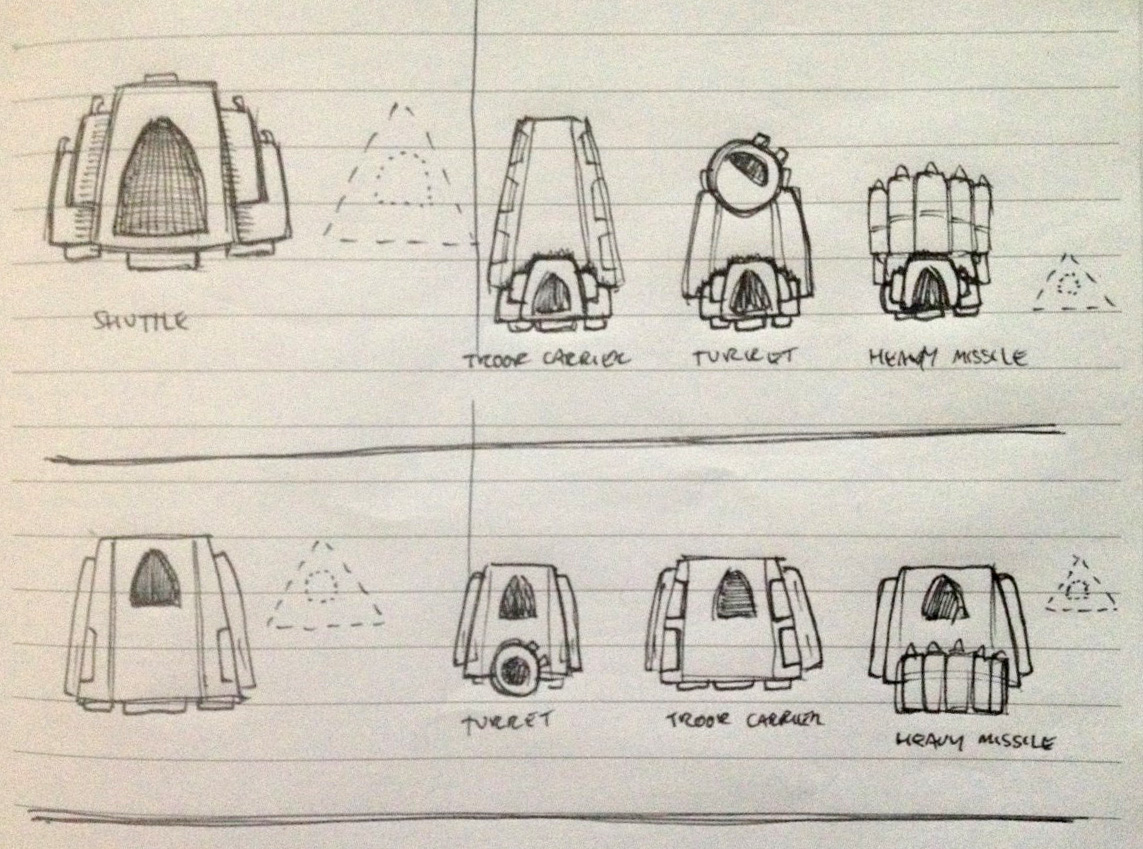 SHUTTLE
TROOP CARRIER
TURRET
HEAVY MISSILE
TURRET
TROOP CARRIER
HEAVY MISSILE